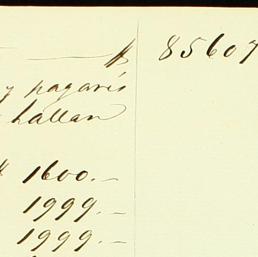 $ 85607
y pagarés
hallan
$ 1600.—
1999.—
1999.—